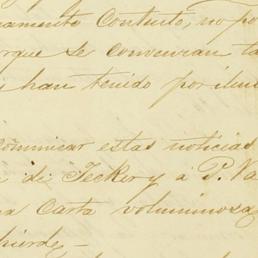 Contento, no po
rque se convenzan ta
han tenido por ilus
Comunicar estas noticias
de Tecker y á P. Va
a Carta voluminosa
pierde —